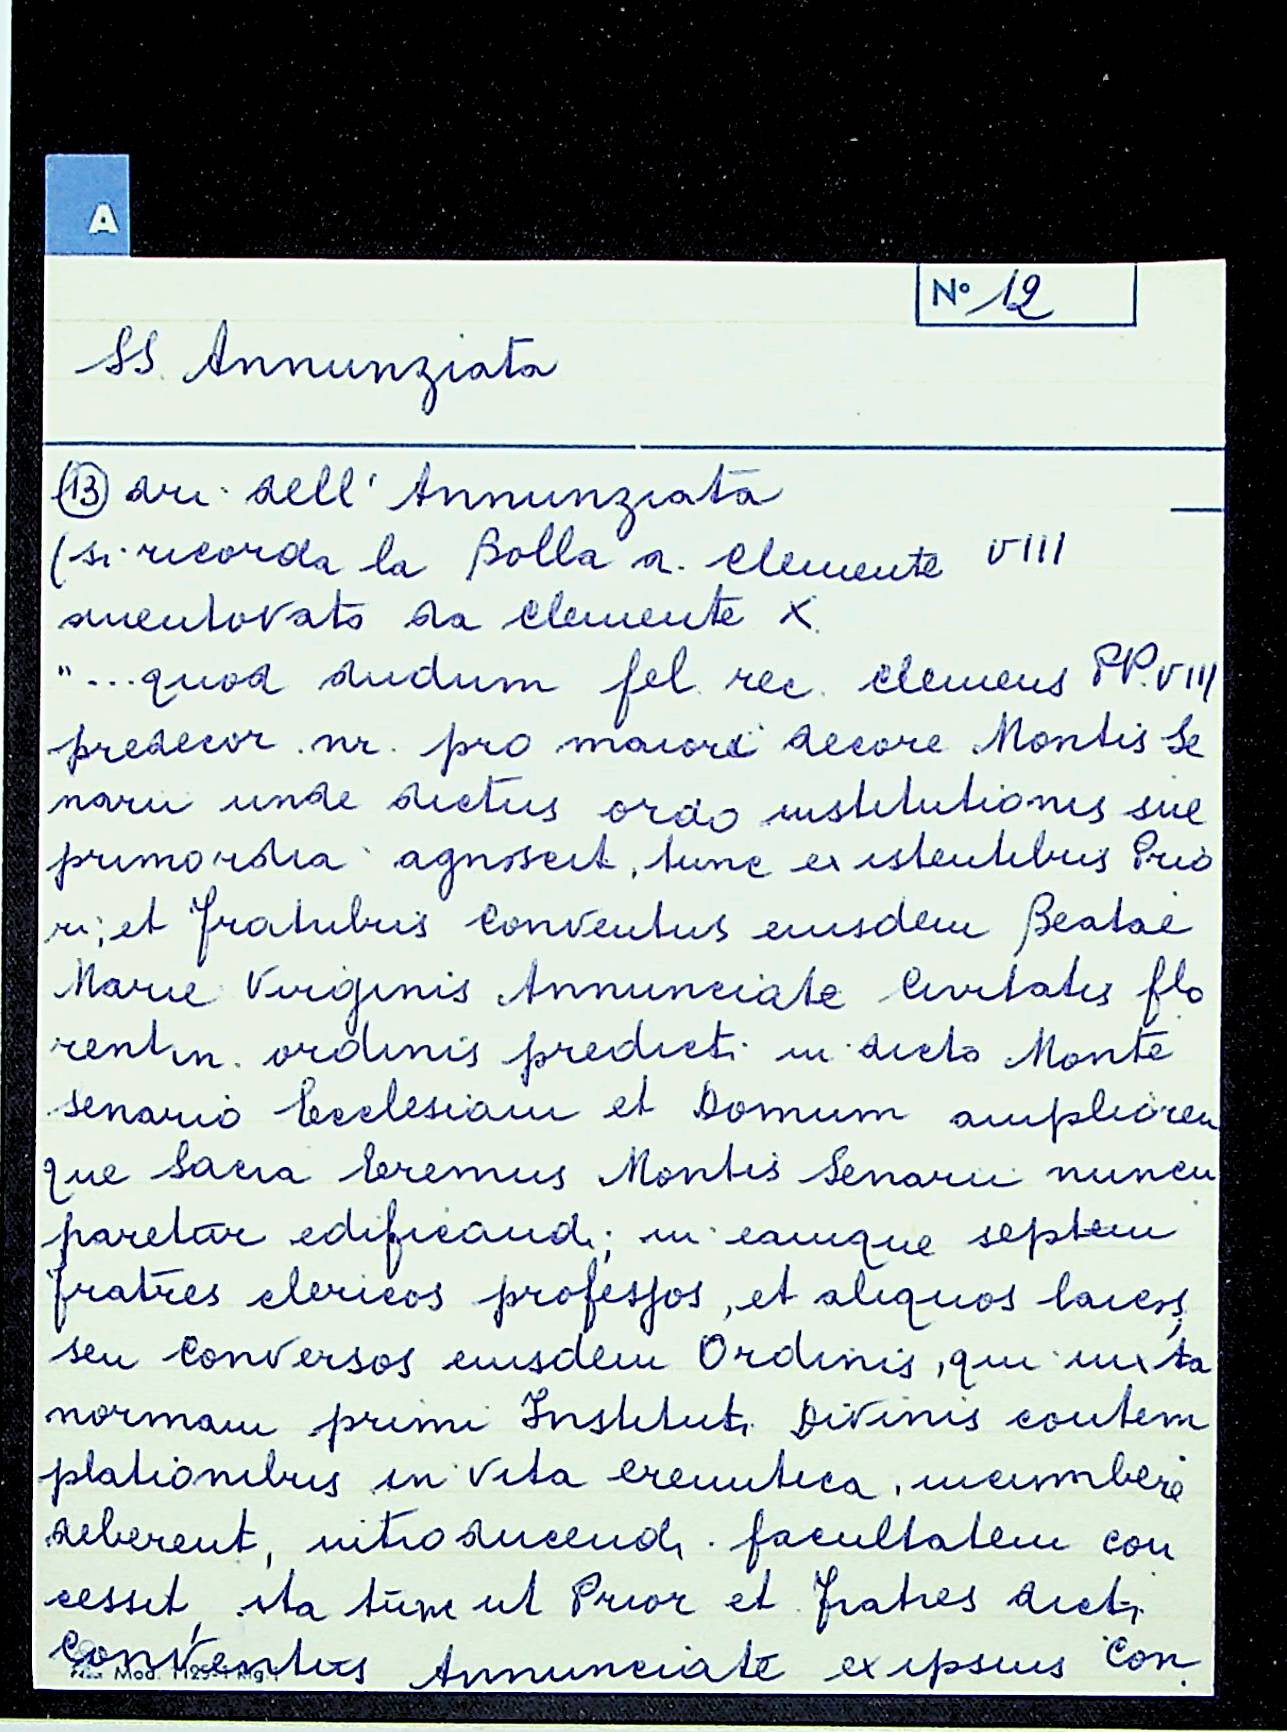 A
N° 12
SS. Annunziata
(13) dri. dell' Annunziata
(si ricorda la Bolla d. Clemente VIII
mentovato da Clemente X.
"...quod dudum fel. rec. Clemens PP. VIII
predecor. nr. pro maiori decore Montis Se
narii unde dictus ordo institutionis sue
primordia agnoscit, tunc existentibus Prio
ri; et Fratribus Conventus eiusdem Beatae
Marie Virginis Annunciate Civitatis flo
rentin. ordinis predicti in dicto Monte
senario Ecclesiam et Domum ampliorem
que Sacra Eremus Montis Senarii nuncu
paretur edificandi; in eamque septem
Fratres clericos professos, et aliquos laicos,
seu Conversos eiusdem Ordinis, qui iuxta
normam primi Instituti Divinis contem
plationibus in vita eremitica incumbere
deberent, introducendi facultatem con
cessit, ita tum ut Prior et Fratres dicti
Conventus Annunciate ex ipsius Con
Mod. 1125-1 Mg. 1